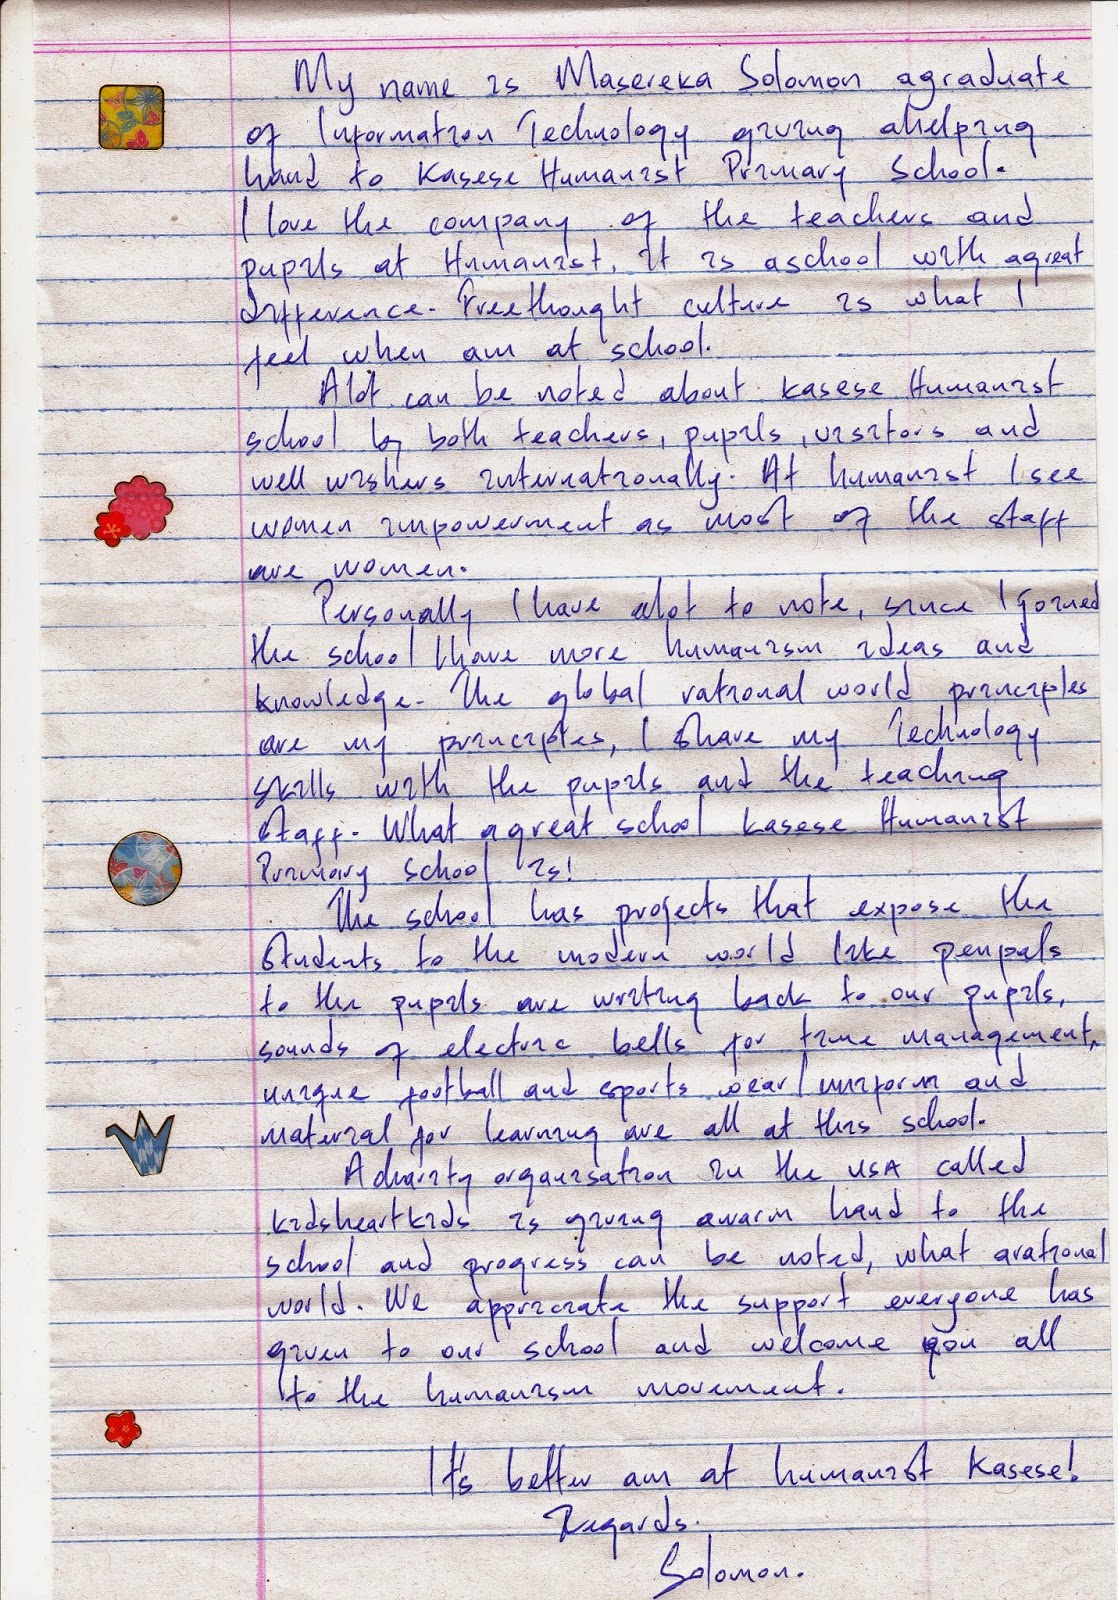 My name is Masereka Solomon agraduate
of Information Technology giving ahelping
hand to Kasese Humanist Primary School.
I love the company of the teachers and
pupils at Humanist, it is aschool with agreat
difference. Freethought culture is what I
feel when am at school.
Alot can be noted about kasese Humanist
school by both teachers, pupils, visitors and
well wishers internationally. At humanist I see
women impowerment as most of the staff
are women.
Personally I have alot to note, since I joined
the school I have more humanism ideas and
knowledge. The global rational world principles
are my principles, I share my Technology
skills with the pupils and the teaching
staff. What agreat school kasese Humanist
Primary school is!
The school has projects that expose the
students to the modern world like penpals
to the pupils are writing back to our pupils,
sounds of electric bells for time management,
unique football and sports wear/uniform and
material for learning are all at this school.
Acharity organisation in the USA called
kidsheartkids is giving awarm hand to the
school and progress can be noted, what arational
world. We appriciate the support everyone has
given to our school and welcome you all
to the humanism movement.
It's better am at humanist Kasese!
Regards.
Solomon.